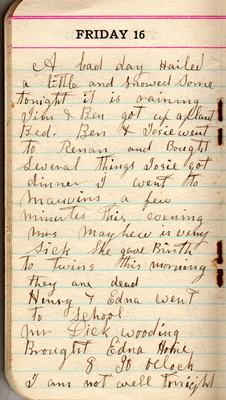 FRIDAY 16
A bad day Hailed
a little and snowed some
tonight it is raining
Jim & Ben got up a plant
Bed. Ben & Josie went
to Renan and Bought
Several things Josie got
dinner I went to
a few
minutes this evening
Mrs Mayhew is very
Sick She gave Birth
to twins this morning
they are dead
Henry & Edna went
to School
Mr Dick Wooding
Brought Edna Home
8 30 oclock
I am not well tonight